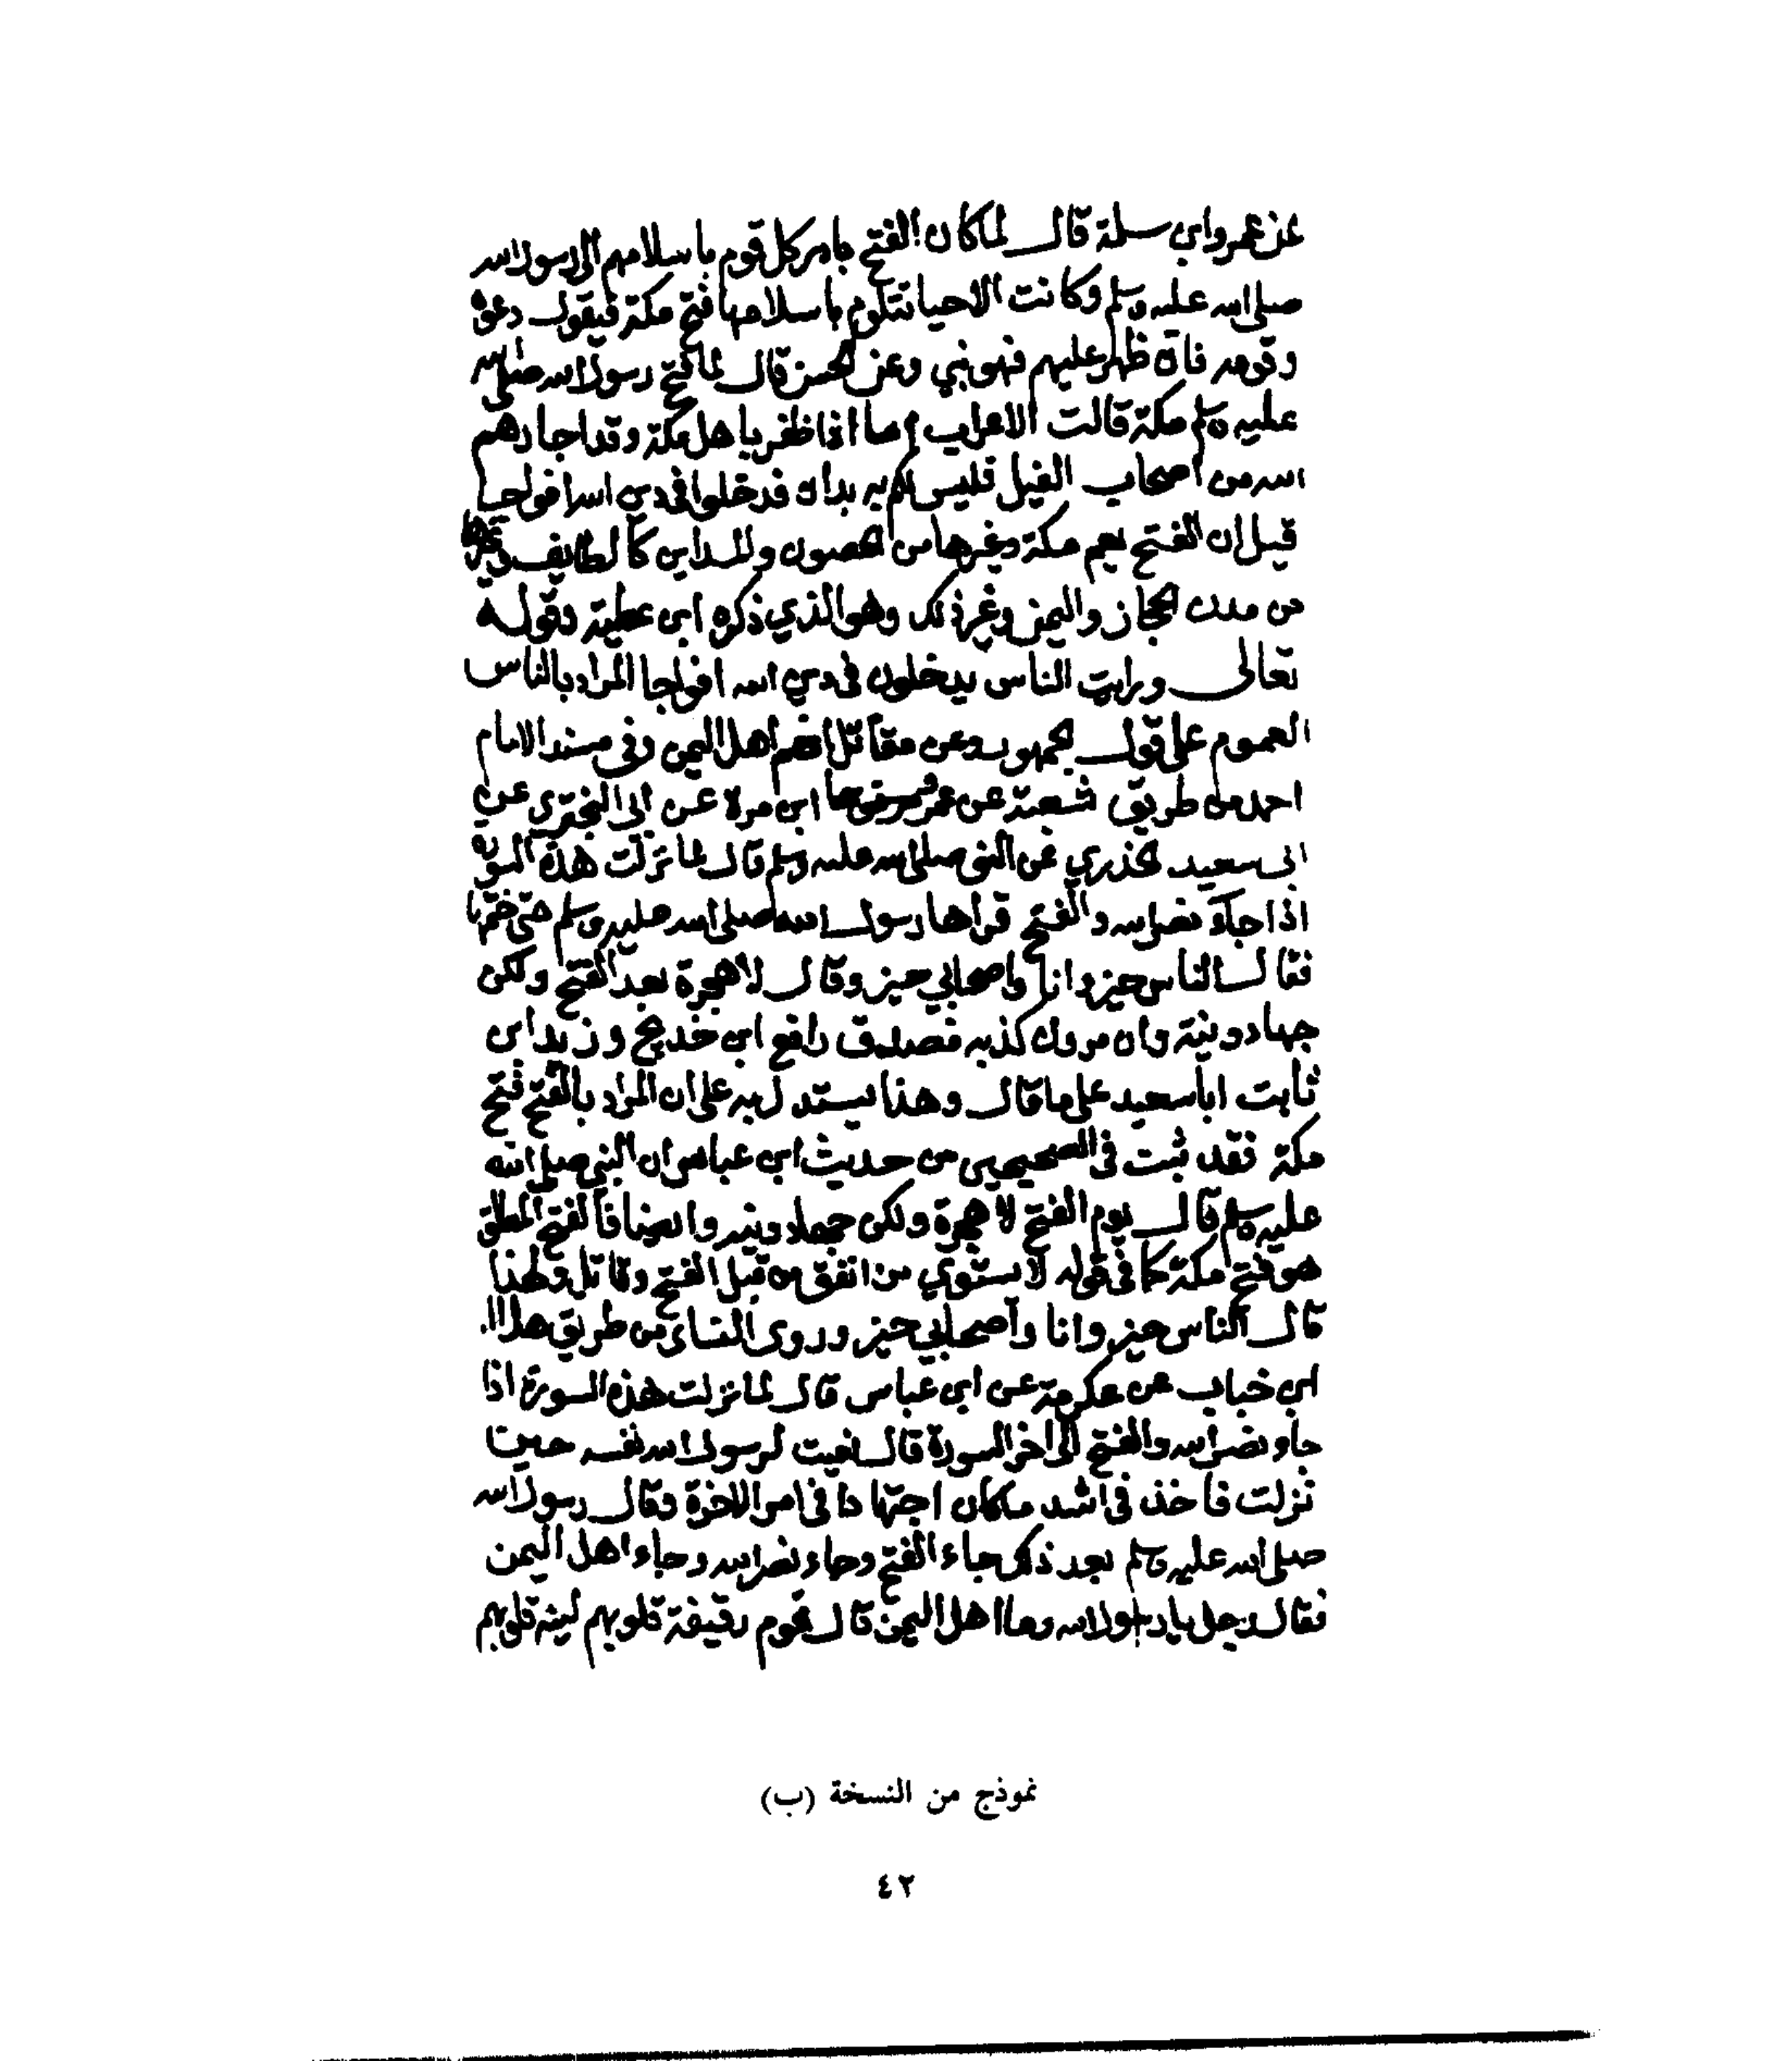 عن عمرو ابن سلمة قال لما كان الفتح بادر كل قوم باسلامهم الى رسول الله
صلى الله عليه وسلم وكانت الاحيا تتلوم باسلامها فتح مكة فيقول دعوه
وقومه فان ظهر عليهم فهو نبي وعن الحسن قال لما فتح رسول الله صلى الله
عليه وسلم مكة قالت الاعراب اما اذا ظفر باهل مكة وقد اجارهم
الله من اصحاب الفيل فليس لكم به يدان فدخلوا في دين الله افواجا
قيل ان الفتح يعم مكة وغيرها من الحصون والمداين كالطايف وغيرها
من مدن الحجاز واليمن وغير ذلك وهو الذي ذكره ابن عطية وقوله
تعالى ورايت الناس يدخلون في دين الله افواجا المراد بالناس
العموم على قول الجمهور وعن مقاتل انهم اهل اليمن وفي مسند الامام
احمد من طريق شعبة عن عمرو ابن مرة عن ابى البختري عن
ابى سعيد الخذري عن النبى صلى الله عليه وسلم قال لما نزلت هذه السورة
اذا جاء نصر الله والفتح قراها رسول الله صلى الله عليه وسلم حتى ختمها
فقال الناس حيز وانا واصحابي حيز وقال لا هجرة بعد الفتح ولكن
جهاد ونية وان مروان كذبه فصدق رافع ابن خديج وزيد ابن
ثابت ابا سعيد على ما قال وهذا يستدل به على ان المراد بالفتح فتح
مكة فقد ثبت في الصحيحين من حديث ابن عباس ان النبي صلى الله
عليه وسلم قال يوم الفتح لا هجرة ولكن جهاد ونيه وايضا فالفتح المطلق
هو فتح مكة كما في قوله لا يستوي من انفق من قبل الفتح وقاتل ولهذا
قال الناس حيز وانا وأصحابي حيز وروى النساى من طريق هلال
ابن خباب عن عكرمة عن ابن عباس قال لما نزلت هذه السورة اذا
جاء نصر الله والفتح الى اخر السورة قال نعيت لرسول الله نفسه حين
نزلت فاخذ في اشد ما كان اجتهادا في امر الاخرة وقال رسول الله
صلى الله عليه وسلم بعد ذلك جاء الفتح وجاء نصر الله وجاء اهل اليمن
فقال رجل يا رسول الله وما اهل اليمن قال قوم رقيقة قلوبهم لينة قلوبهم
نموذج من النسخة (ب)
٤٢